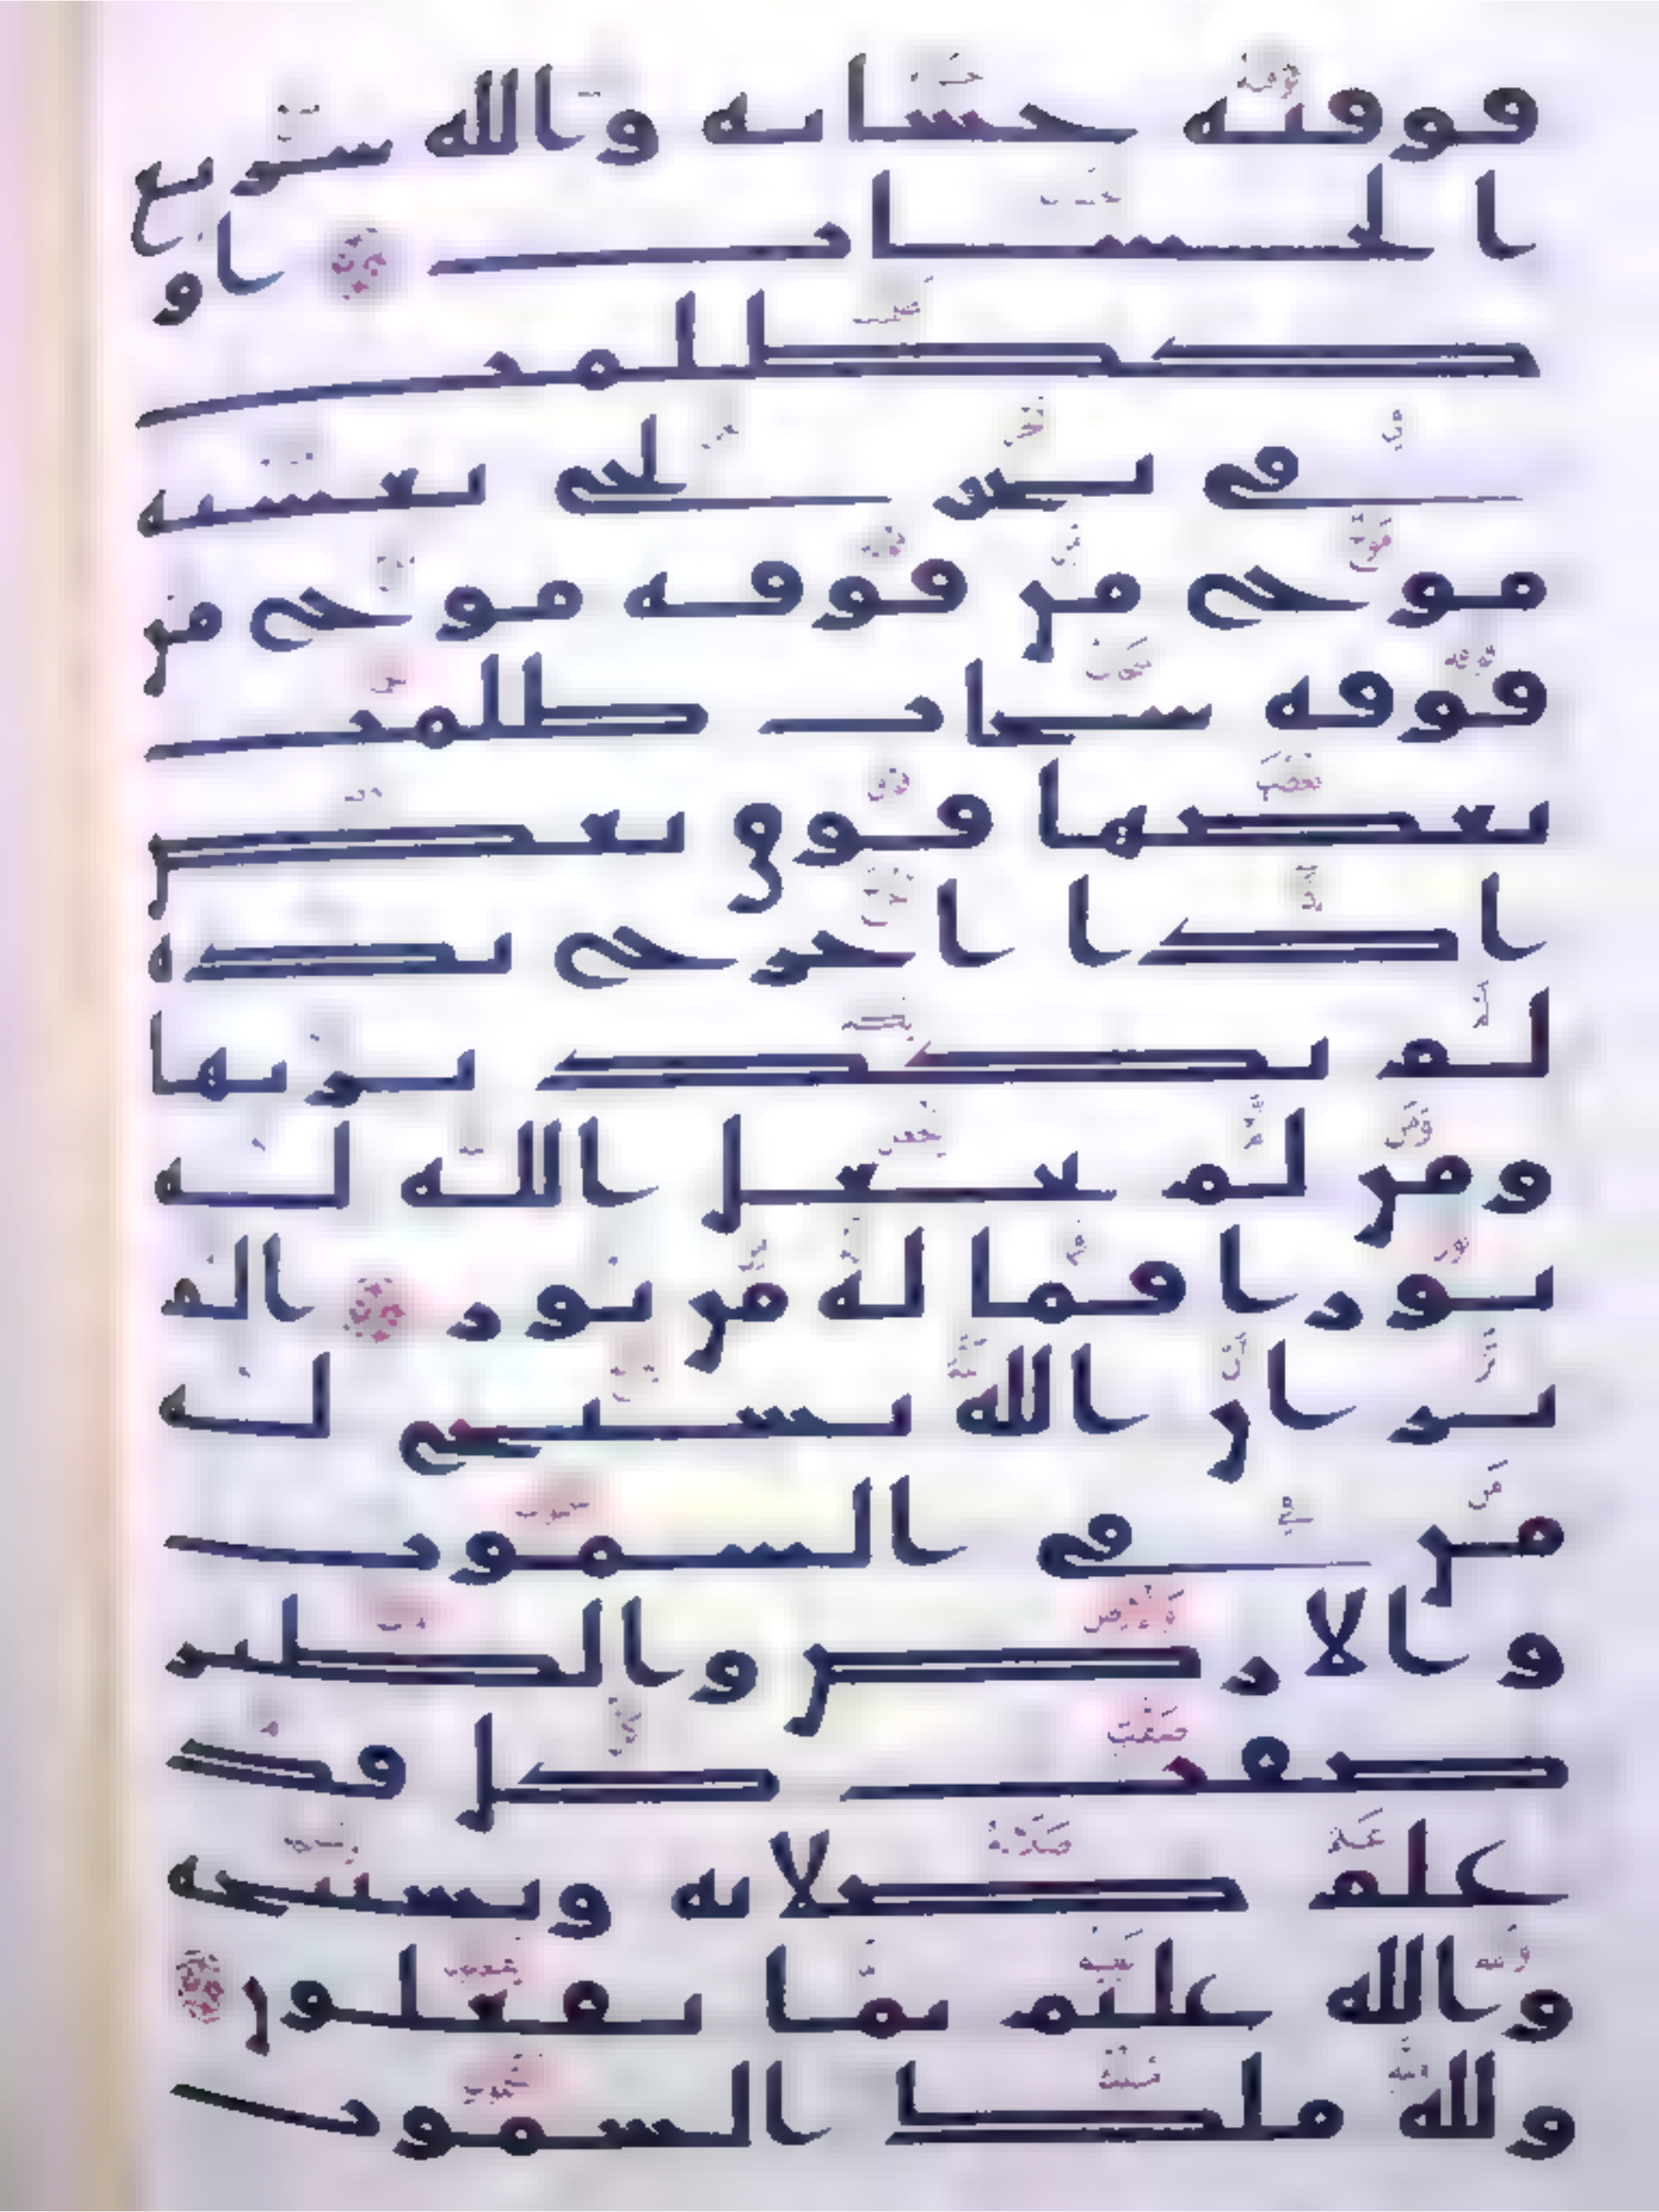 فوفيه حسابه والله سريع
الحساب او
كظلمت
في بحر لجي يغشيه
موج من فوقه موج من
فوقه سحاب ظلمت
بعضها فوق بعض
اذا اخرج يده
لم يكد يريها
ومن لم يجعل الله له
نورا فما له من نور الم
تر ان الله يسبح له
من في السموت
والارض والطير
صفت كل قد
علم صلاته وتسبيحه
والله عليم بما يفعلون
ولله ملك السموت